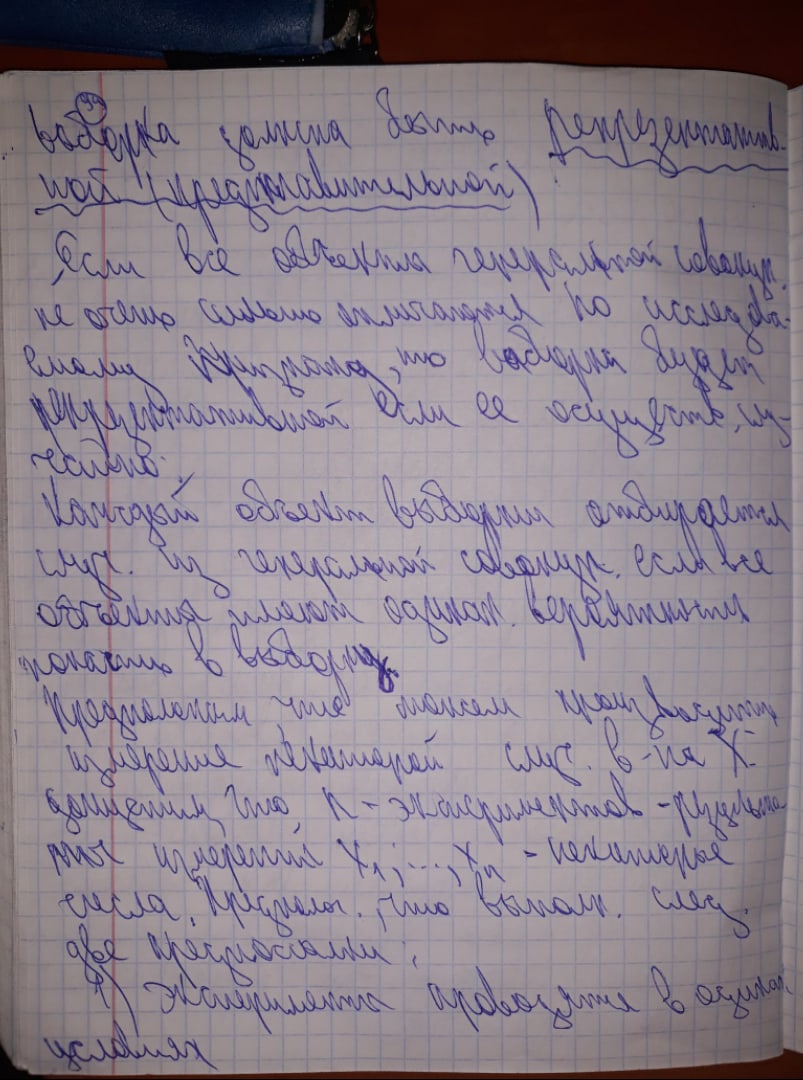 99
выборка должна быть репрезентатив-
ной (представительной)
Если все объекты генеральной совокуп.
не очень сильно отличаются по исследу-
емому признаку, то выборка будет
репрезентативной если ее осуществ. слу-
чайно.
Каждый объект выборки отбирается
случ. из генеральной совокуп. если все
объекты имеют одинак. вероятность
попасть в выборку.
Предположим, что можем производить
измерение некоторой случ. в-на X
допустим, что n - экспериментов - результа-
ты измерений x₁; ..., xₙ - некоторые
числа. Предполож., что выполн. след.
две предпосылки:
1) Эксперименты проводятся в одинак
условиях